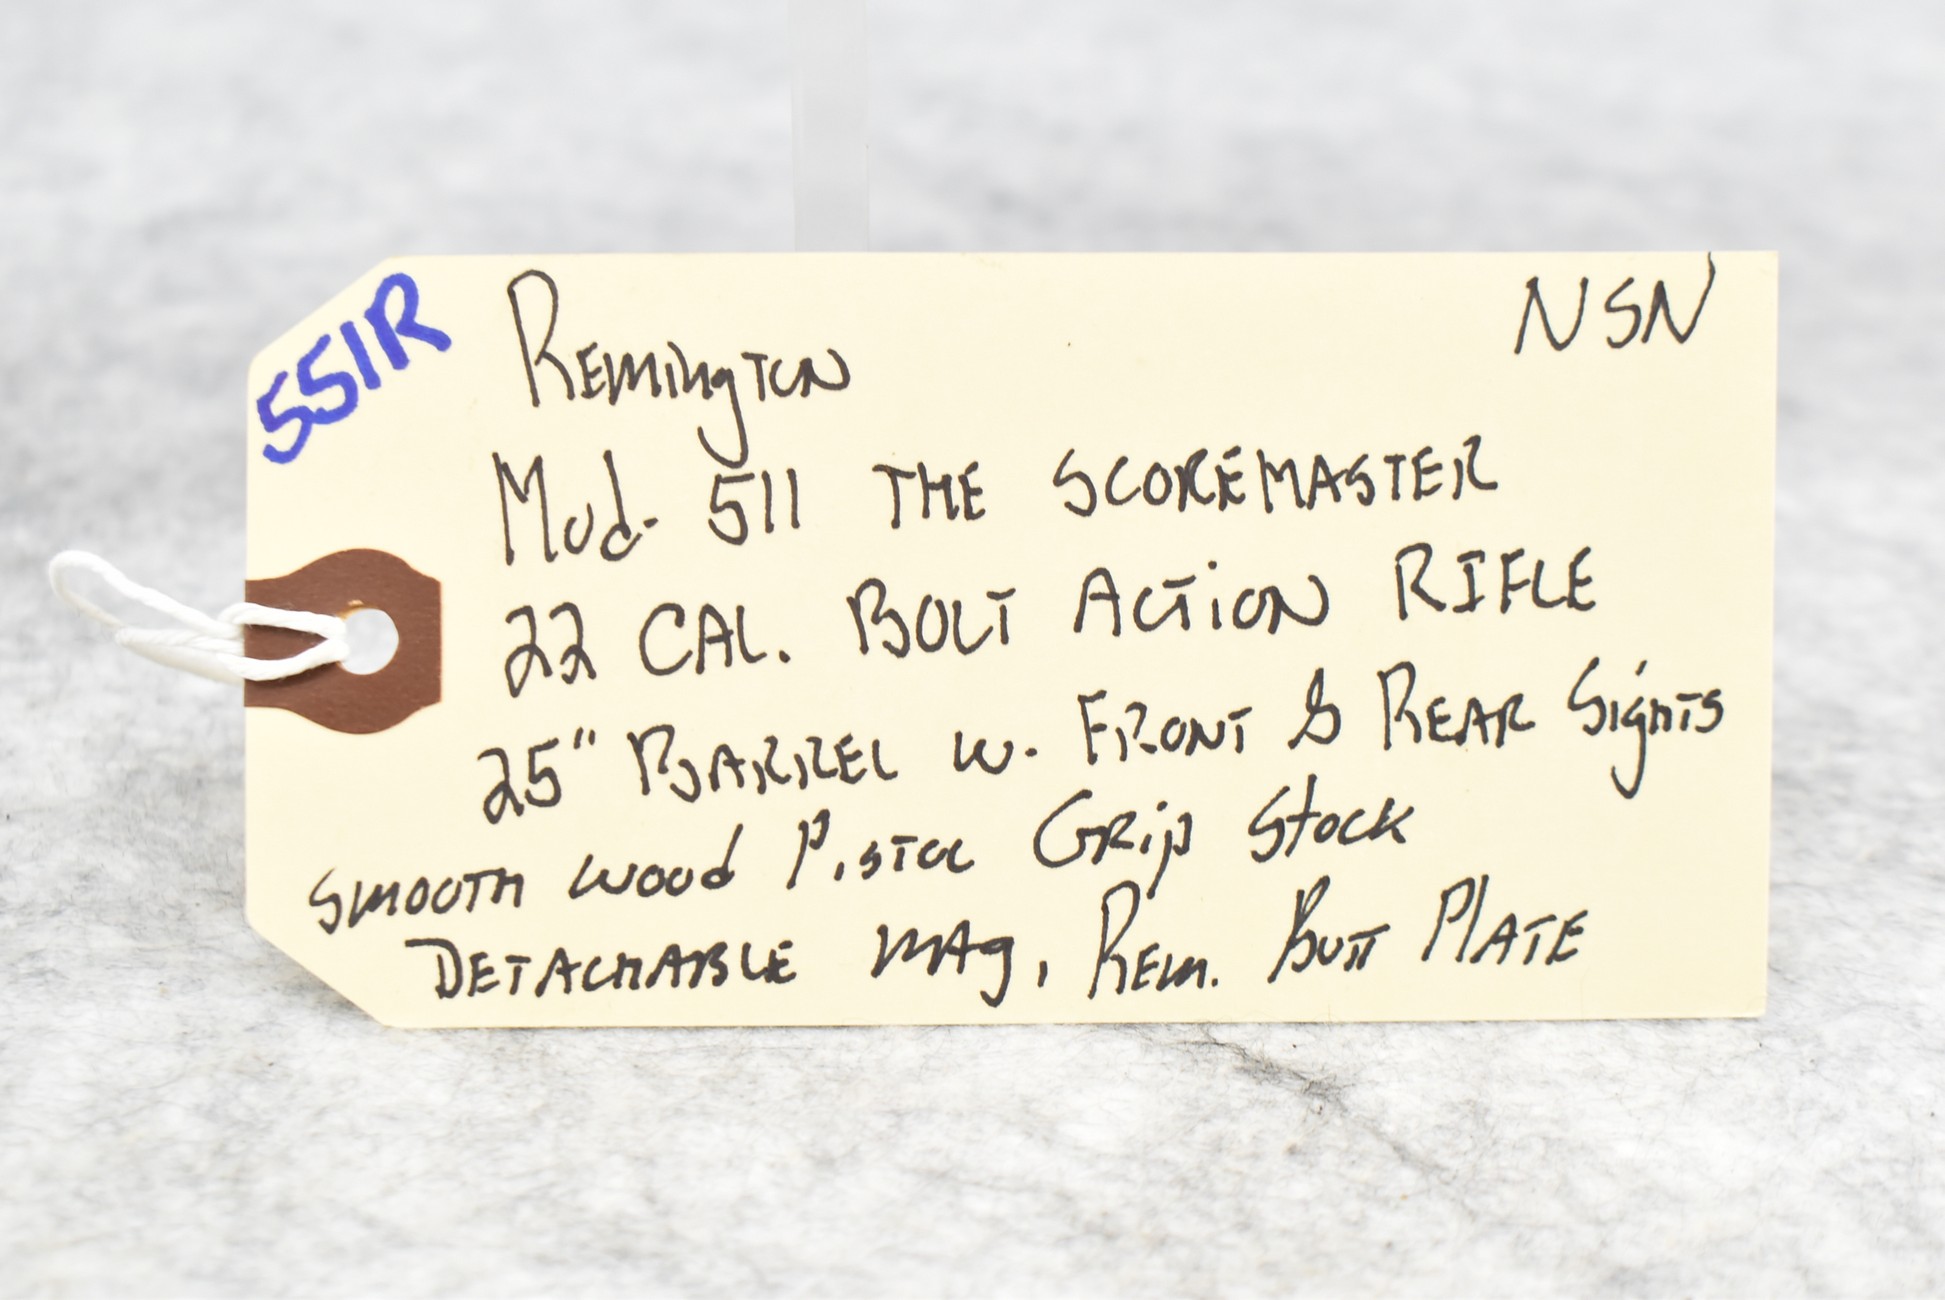 551R
NSN
Remington
Mod. 511 THE SCOREMASTER
22 CAL. BOLT ACTION RIFLE
25" BARREL w. FRONT & REAR Sights
SMOOTH wood Pistol Grip Stock
DETACHABLE MAg, Rem. Butt PlATE